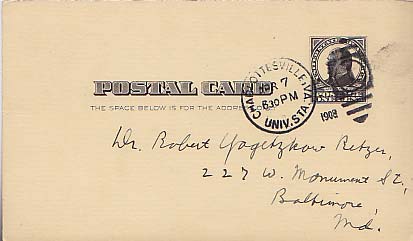 POSTAL CARD
THE SPACE BELOW IS FOR THE ADDRESS
CHARLOTTESVILLE, VA.
7
6 30 PM
UNIV. STA.
1909
Dr. Robert Yogetzkow Retzer,
227 W. Monument St.,
Baltimore,
Md.